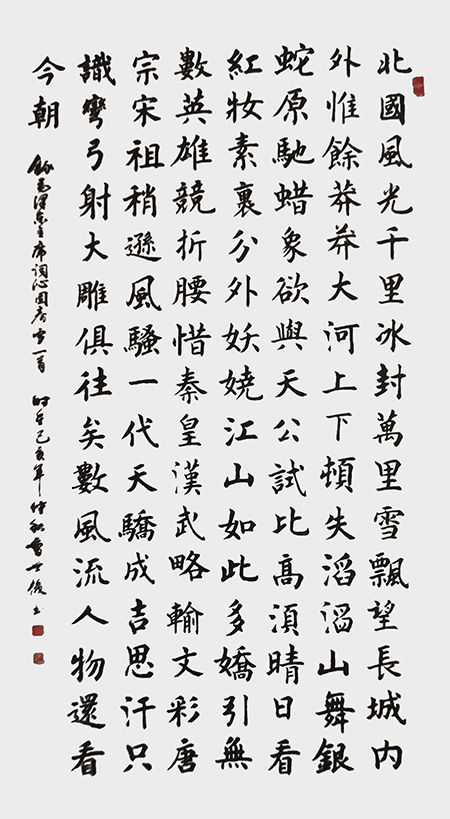 北國風光千里冰封萬里雪飄望長城内
外惟餘莽莽大河上下頓失滔滔山舞銀
蛇原馳蜡象欲與天公試比高須晴日看
紅妝素裹分外妖嬈江山如此多嬌引無
數英雄競折腰惜秦皇漢武略輸文彩唐
宗宋祖稍遜風騷一代天驕成吉思汗只
識彎弓射大雕俱往矣數風流人物還看
今朝
錄毛澤東主席詞沁園春雪一首 時在己亥年仲秋